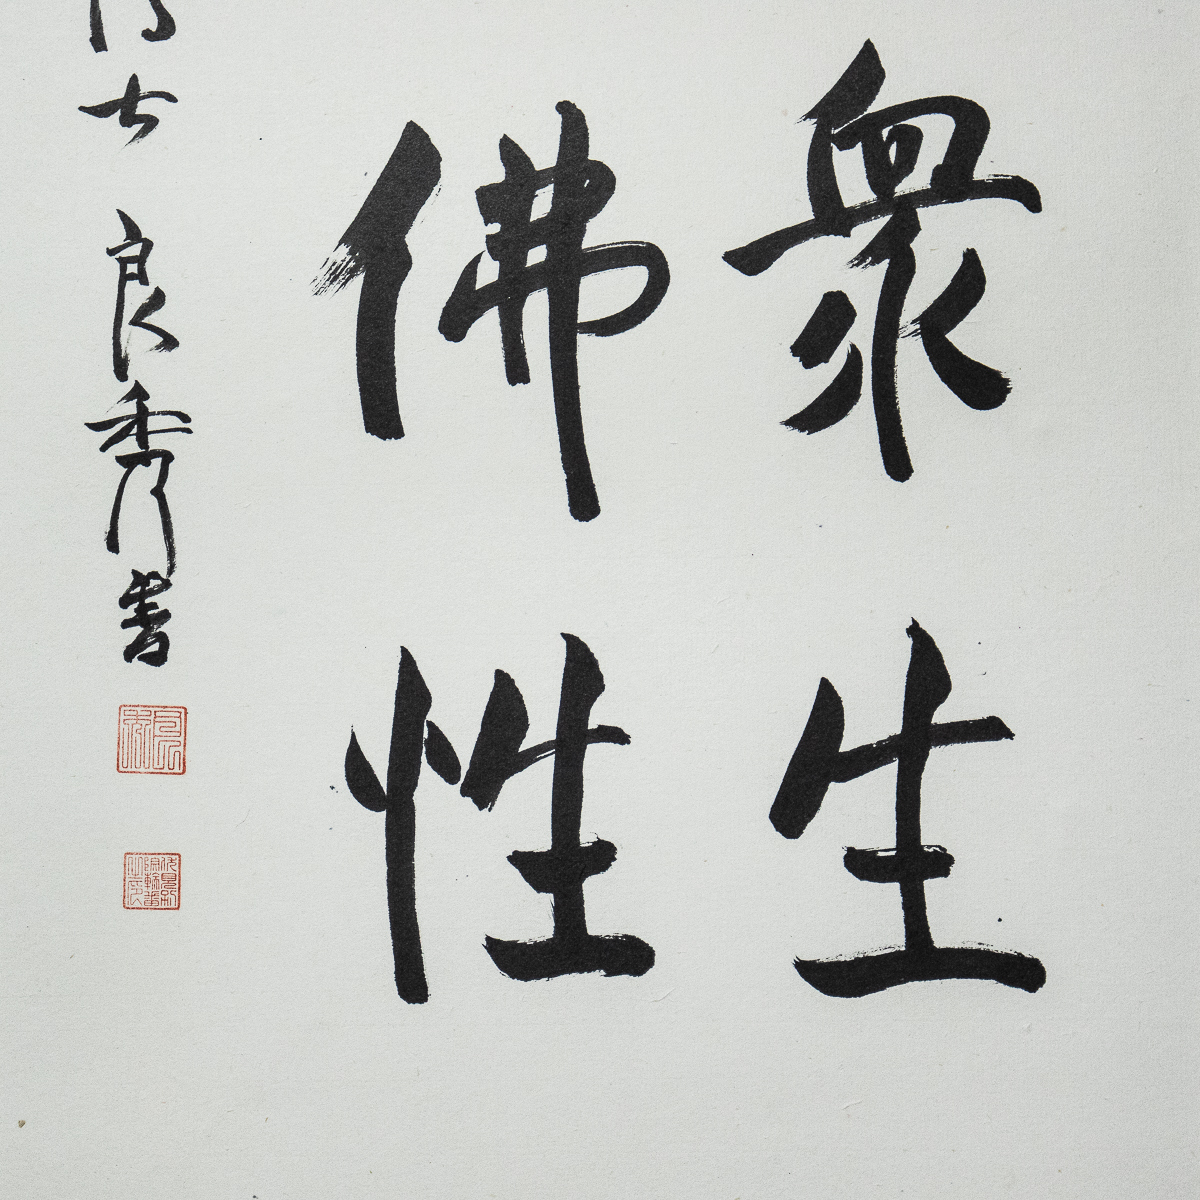 衆生
佛性
士良秀書